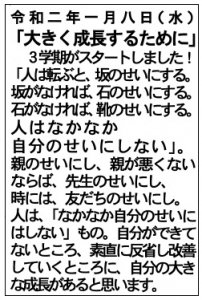 令和二年一月八日(水)
「大きく成長するために」
３学期がスタートしました！
「人は転ぶと、坂のせいにする。
坂がなければ、石のせいにする。
石がなければ、靴のせいにする。
人はなかなか
自分のせいにしない」。
親のせいにし、親が悪くない
ならば、先生のせいにし、
時には、友だちのせいにし。
人は、「なかなか自分のせいに
はしない」もの。自分ができて
ないところ、素直に反省し改善
していくところに、自分の大き
な成長があると思います。